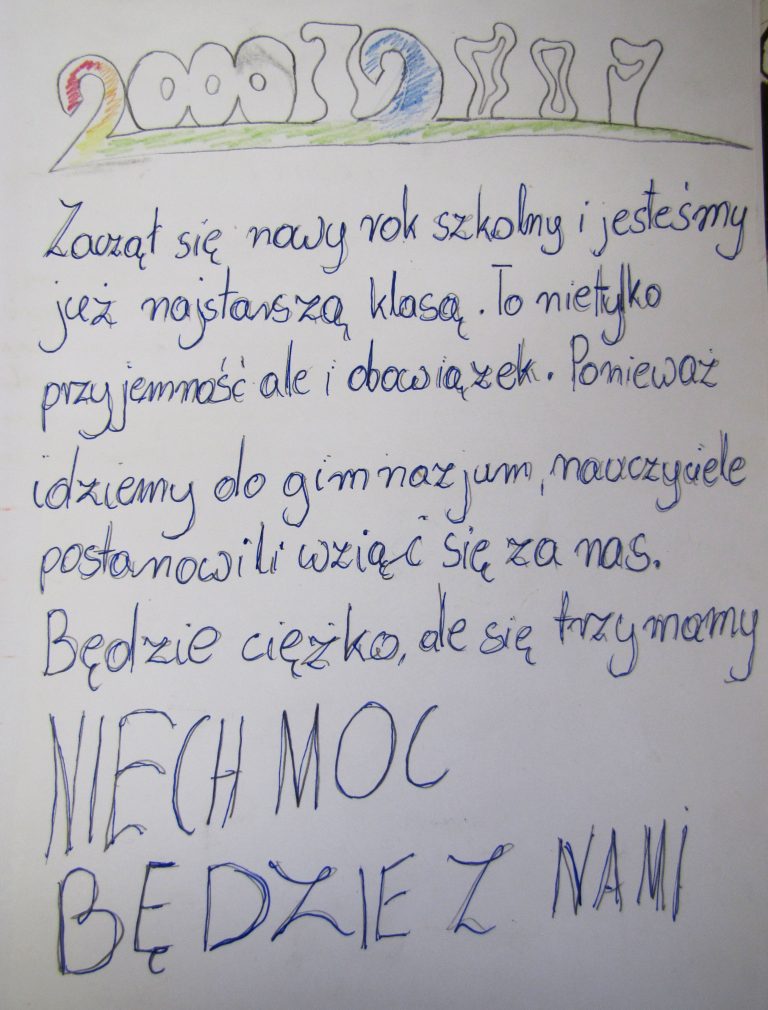 2000
Zaczął się nowy rok szkolny i jesteśmy
już najstarszą klasą. To nietylko
przyjemność ale i obowiązek. Ponieważ
idziemy do gimnazjum, nauczyciele
postanowili wziąć się za nas.
Będzie ciężko, ale się trzymamy
NIECH MOC
BĘDZIE Z NAMI